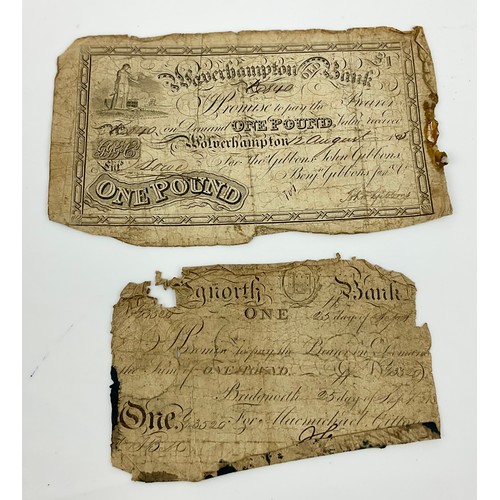 Wolverhampton Bank
£1
No 840
I Promise to pay the Bearer
No 840 on Demand ONE POUND Value received
Wolverhampton 12 August
For Thos Gibbons, John Gibbons,
Benjn Gibbons
ONE POUND
gnorth Bank
No 3520 ONE 25 day of
I Promise to pay the Bearer on Demand
the Sum of ONE POUND. No 3520
Bridgnorth 25 day of Sept
One. No 3520 For Macmichael